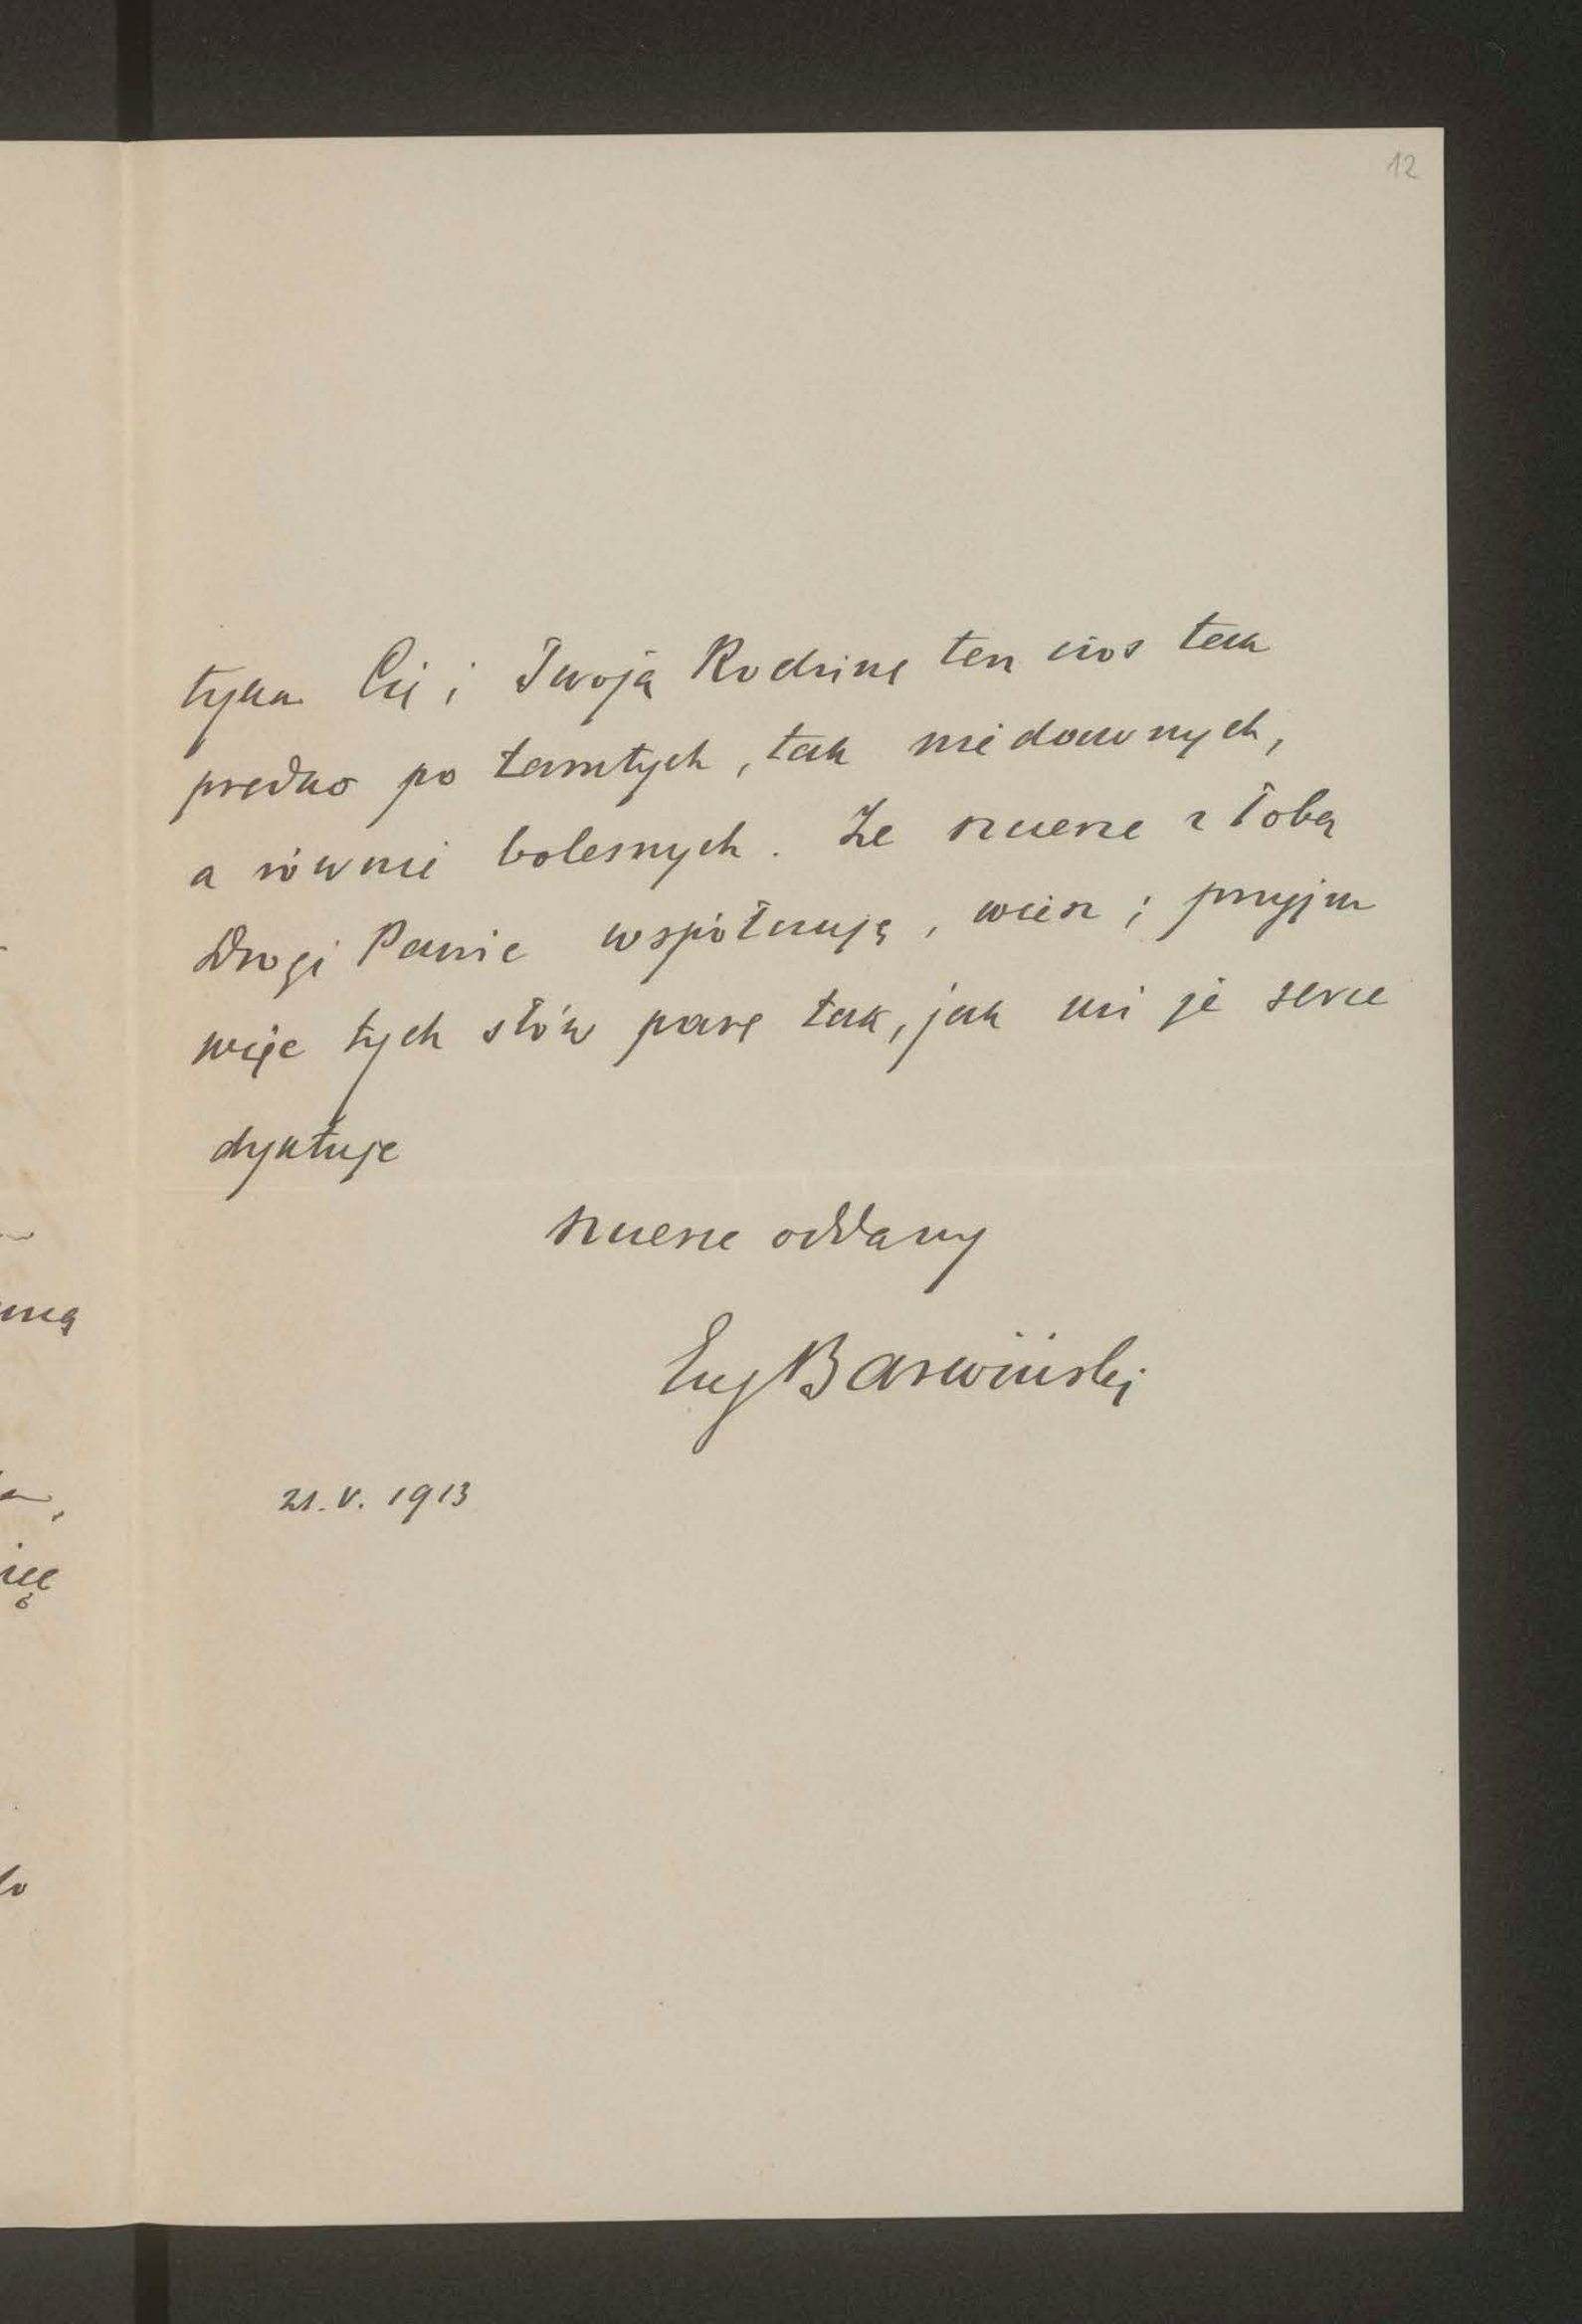 12
tyka Cię i Twoją Rodzinę ten cios tak
prędko po tamtych, tak niedawnych,
a równie bolesnych. Że szczerze z Tobą
Drogi Panie współczuję, wiesz i przyjm
więc tych słów parę tak, jak mi je serce
dyktuje
szczerze oddany
Eug Barwiński
21. V. 1913